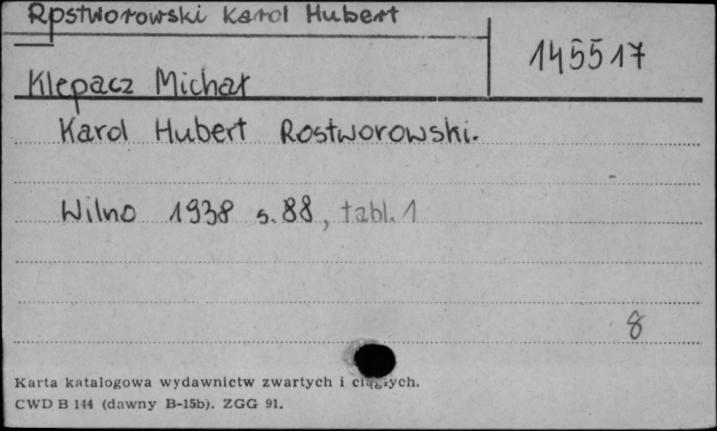 Rostworowski Karol Hubert
145517
Klepacz Michał
Karol Hubert Rostworowski.
Wilno 1938 s. 88, tabl. 1
8
Karta katalogowa wydawnictw zwartych i ciągłych.
CWD B 144 (dawny B-15b). ZGG 91.